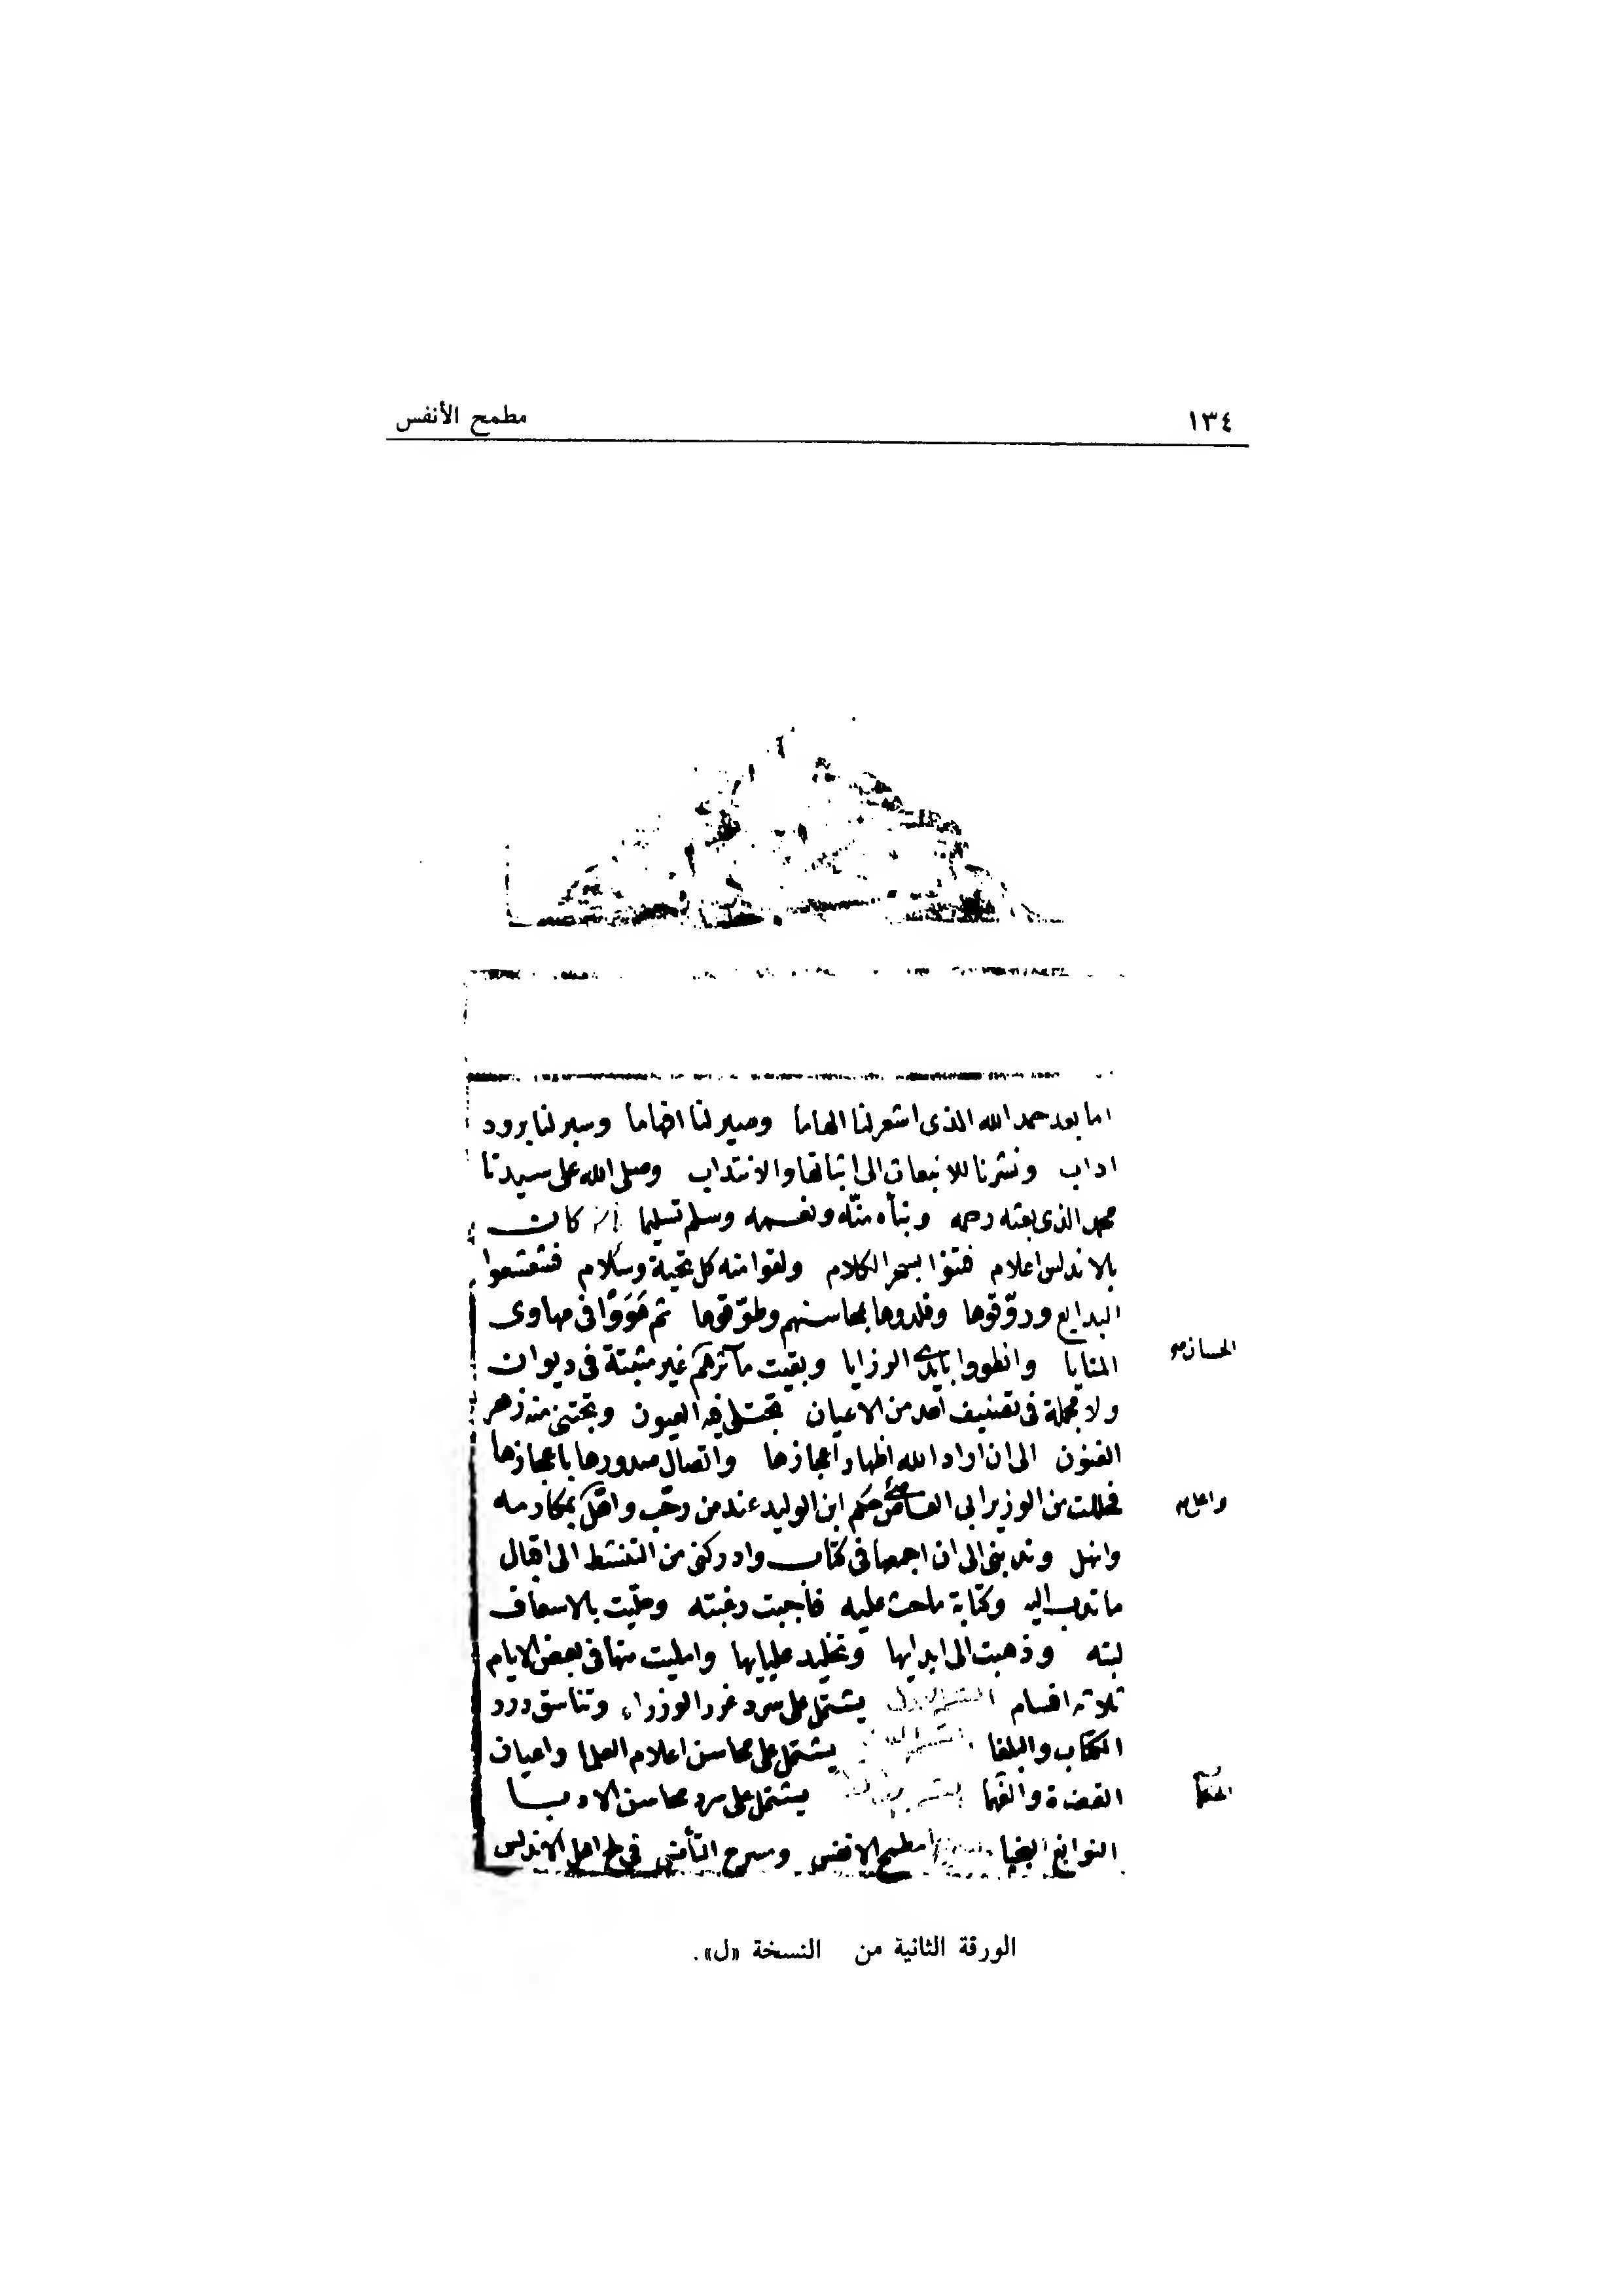 ١٣٤
مطمح الأنفس
اما بعد حمد الله الذى اشعرلنا الهاما وصيرلنا افهاما وسيرلنا برود
اداب ونشرنا للانبعاث الى اثباتها والانتداب وصلى الله على سيدنا
محمد الذى بعثه رحمه ونبأه منّه ونعمه وسلم تسليما كان
بالاندلس اعلام فتنوا بسحر الكلام ولقوا منه كل تحية وسلام فشعشعوا
البدايع وروّقوها وقلدوها بمحاسنهم وطوّقوها ثم هَوَوْا فى مهاوى
المنايا وانطووا بايدى الرزايا وبقيت مآثرهم غير مثبتة فى ديوان
الحسان
ولا مجملة فى تصنيف احد من الاعيان تجتلى فيه العيون وتجتنى منه زهر
الفنون الى ان اراد الله اظهار اعجازها واتصال صدورها باعجازها
فحللت من الوزير ابى العاصى حكم ابن الوليد عند من رحّب واهّل بمكارمه
وانهل وندبنى الى ان اجمعها فى كتاب وادركنى من التنشط الى اقبال
ما ندب اليه وكتابة ما حث عليه فأجبت رغبته وحليت بالاسعاف
لبته وذهبت الى ابدايها وتخليد عليايها وامليت منها فى بعض الايام
ثلاثه اقسام القسم الاول يشتمل على سرد غرر الوزراء وتناسق درر
الكتاب والبلغا يشتمل على محاسن اعلام العلما واعيان
القضاة والفهما يشتمل على سرد محاسن الادبا
النوابغ النجبا مطمح الانفس ومسرح التأنس فى ملح اهل الاندلس
الورقة الثانية من النسخة «ل».